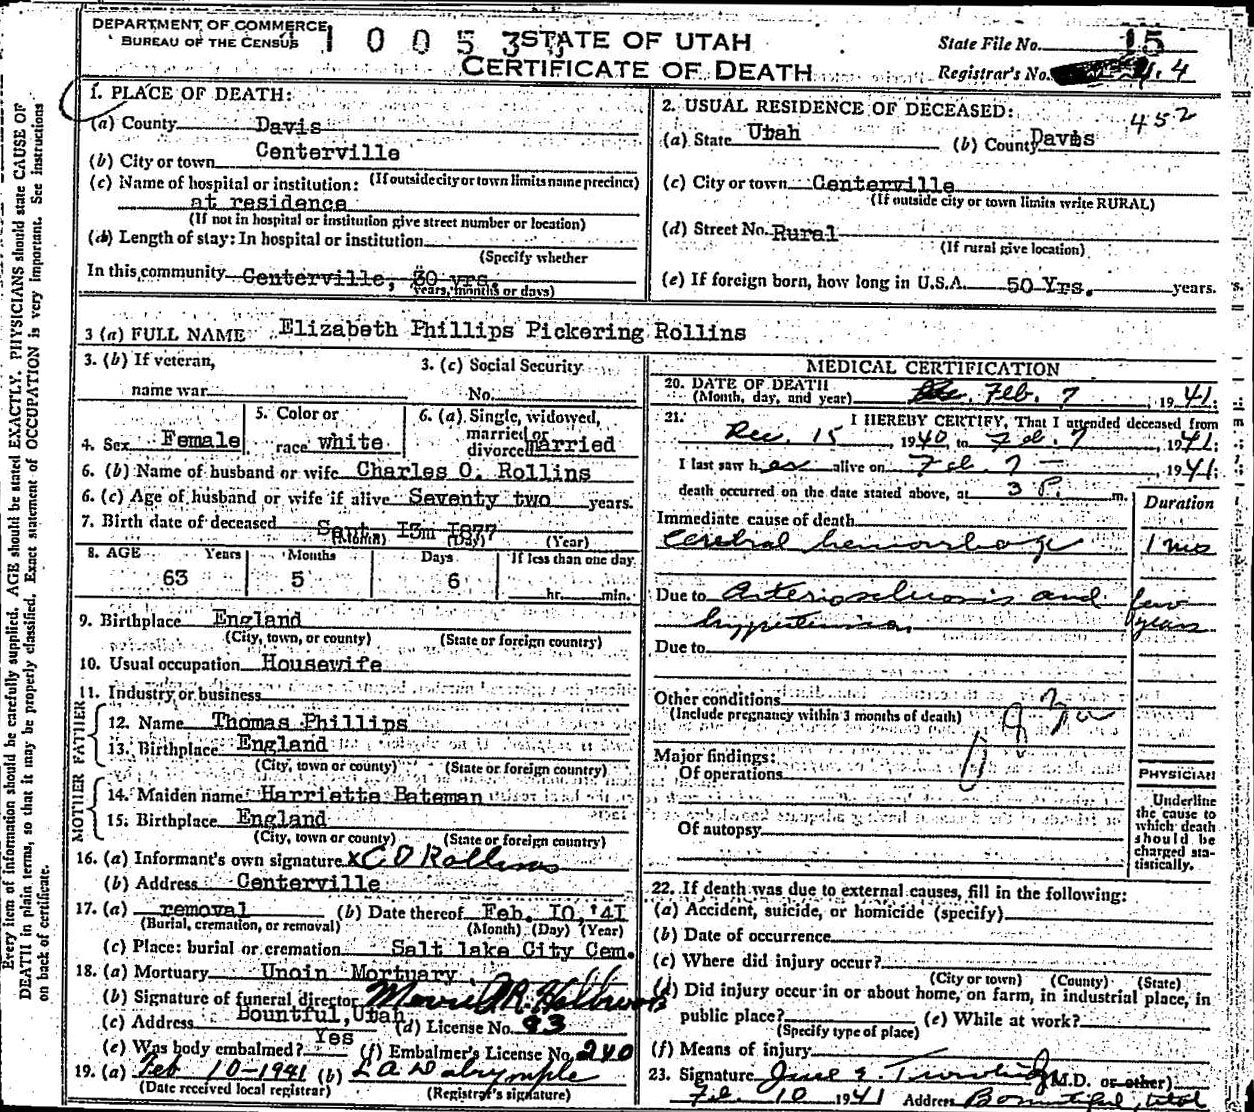 DEPARTMENT OF COMMERCE
BUREAU OF THE CENSUS
1 0 0 5 3
STATE OF UTAH
CERTIFICATE OF DEATH
State File No. 15
Registrar's No. 4
Every item of information should be carefully supplied. AGE should be stated EXACTLY. PHYSICIANS should state CAUSE OF
DEATH in plain terms, so that it may be properly classified. Exact statement of OCCUPATION is very important. See instructions
on back of certificate.
1. PLACE OF DEATH:
(a) County Davis
(b) City or town Centerville
(If outside city or town limits name precinct)
(c) Name of hospital or institution:
at residence
(If not in hospital or institution give street number or location)
(d) Length of stay: In hospital or institution
(Specify whether
In this community Centerville, 30 yrs.
years, months or days)
2. USUAL RESIDENCE OF DECEASED: 452
(a) State Utah (b) County Davis
(c) City or town Centerville
(If outside city or town limits write RURAL)
(d) Street No. Rural
(If rural give location)
(e) If foreign born, how long in U.S.A. 50 Yrs. years.
3 (a) FULL NAME Elizabeth Phillips Pickering Rollins
3. (b) If veteran,
name war
3. (c) Social Security
No.
4. Sex Female
5. Color or
race white
6. (a) Single, widowed,
married or
divorced married
6. (b) Name of husband or wife Charles O. Rollins
6. (c) Age of husband or wife if alive Seventy two years.
7. Birth date of deceased Sept 13m 1877
(Month) (Day) (Year)
8. AGE Years Months Days If less than one day
63 5 6 hr. min.
9. Birthplace England
(City, town, or county) (State or foreign country)
10. Usual occupation Housewife
11. Industry or business
FATHER
12. Name Thomas Phillips
13. Birthplace England
(City, town, or county) (State or foreign country)
MOTHER
14. Maiden name Harriette Bateman
15. Birthplace England
(City, town or county) (State or foreign country)
16. (a) Informant's own signature x C O Rollins
(b) Address Centerville
17. (a) removal (b) Date thereof Feb. 10, '41
(Burial, cremation, or removal) (Month) (Day) (Year)
(c) Place: burial or cremation Salt lake City Cem.
18. (a) Mortuary Unoin Mortuary
(b) Signature of funeral director
(c) Address Bountful, Utah (d) License No. 93
(e) Was body embalmed? Yes (f) Embalmer's License No. 240
19. (a) Feb 10-1941 (b) L A Dalrymple
(Date received local registrar) (Registrar's signature)
MEDICAL CERTIFICATION
20. DATE OF DEATH
(Month, day, and year) Feb. 7, 1941.
21. I HEREBY CERTIFY, That I attended deceased from
Dec. 15, 1940, to Feb. 7, 1941.
I last saw her alive on Feb. 7 -, 1941.
death occurred on the date stated above, at 3 P. m.
Duration
Immediate cause of death
Cerebral hemorrhage 1 mo
Due to Arteriosclerosis and few
hypertension. years
Due to
Other conditions
(Include pregnancy within 3 months of death)
Major findings:
Of operations
Of autopsy
PHYSICIAN
Underline
the cause to
which death
should be
charged sta-
tistically.
22. If death was due to external causes, fill in the following:
(a) Accident, suicide, or homicide (specify)
(b) Date of occurrence
(c) Where did injury occur?
(City or town) (County) (State)
(d) Did injury occur in or about home, on farm, in industrial place, in
public place? (e) While at work?
(Specify type of place)
(f) Means of injury
23. Signature (M.D. or other)
Feb. 10 1941 Address Bountiful, Utah